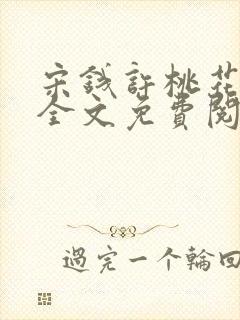 宋錢許桃花
全文免費閱
過完一个輪回